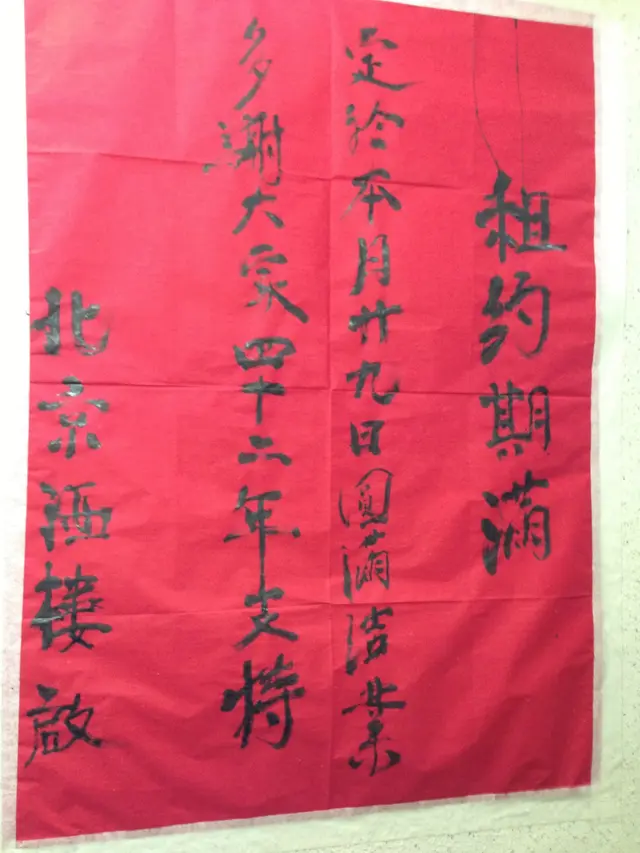 租约期满
定於本月廿九日圓满洁业
多謝大家四十六年支特
北京酒楼啟